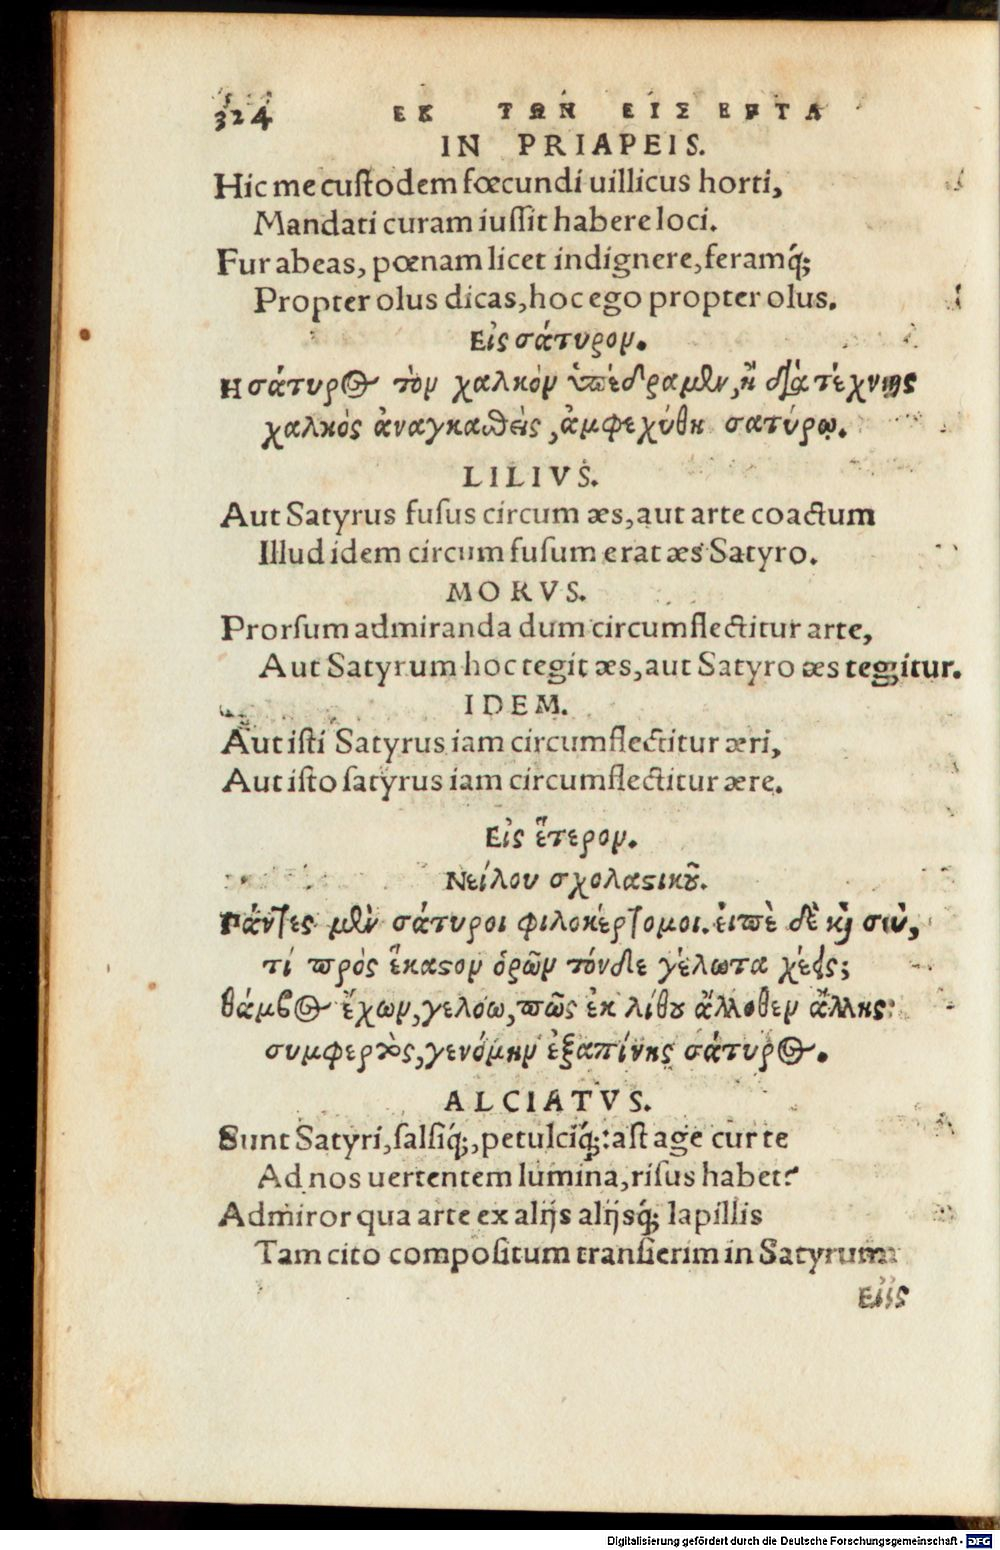 324 ΕΚ ΤΩΝ ΕΙΣ ΕΡΤΑ
IN PRIAPEIS.
Hic me custodem fœcundi uillicus horti,
Mandati curam iussit habere loci.
Fur abeas, pœnam licet indignere, feramq́;
Propter olus dicas, hoc ego propter olus.
Εἰς σάτυρον.
Η σάτυρος τὸν χαλκὸν ὑπέδραμεν, ἢ διὰ τέχνης
χαλκὸς ἀναγκασθεὶς, ἀμφεχύθη σατύρῳ.
LILIVS.
Aut Satyrus fusus circum æs, aut arte coactum
Illud idem circum fusum erat æs Satyro.
MORVS.
Prorsum admiranda dum circumflectitur arte,
Aut Satyrum hoc tegit æs, aut Satyro æs teggitur.
IDEM.
Aut isti Satyrus iam circumflectitur æri,
Aut isto satyrus iam circumflectitur ære.
Εἰς ἕτερον.
Νείλου σχολαστικοῦ.
Πάντες μὲν σάτυροι φιλοκέρτομοι. εἰπὲ δὲ καὶ σὺ,
τί πρὸς ἕκαστον ὁρῶν τόνδε γέλωτα χέεις;
θάμβος ἔχων, γελόω, πῶς ἐκ λίθου ἄλλοθεν ἄλλης
συμφερτὸς, γενόμην ἐξαπίνης σάτυρος.
ALCIATVS.
Sunt Satyri, salsiq́;, petulciq́;: ast age cur te
Ad nos uertentem lumina, risus habet?
Admiror qua arte ex alijs alijsq́; lapillis
Tam cito compositum transierim in Satyrum
Εἰς
Digitalisierung gefördert durch die Deutsche Forschungsgemeinschaft - DFG